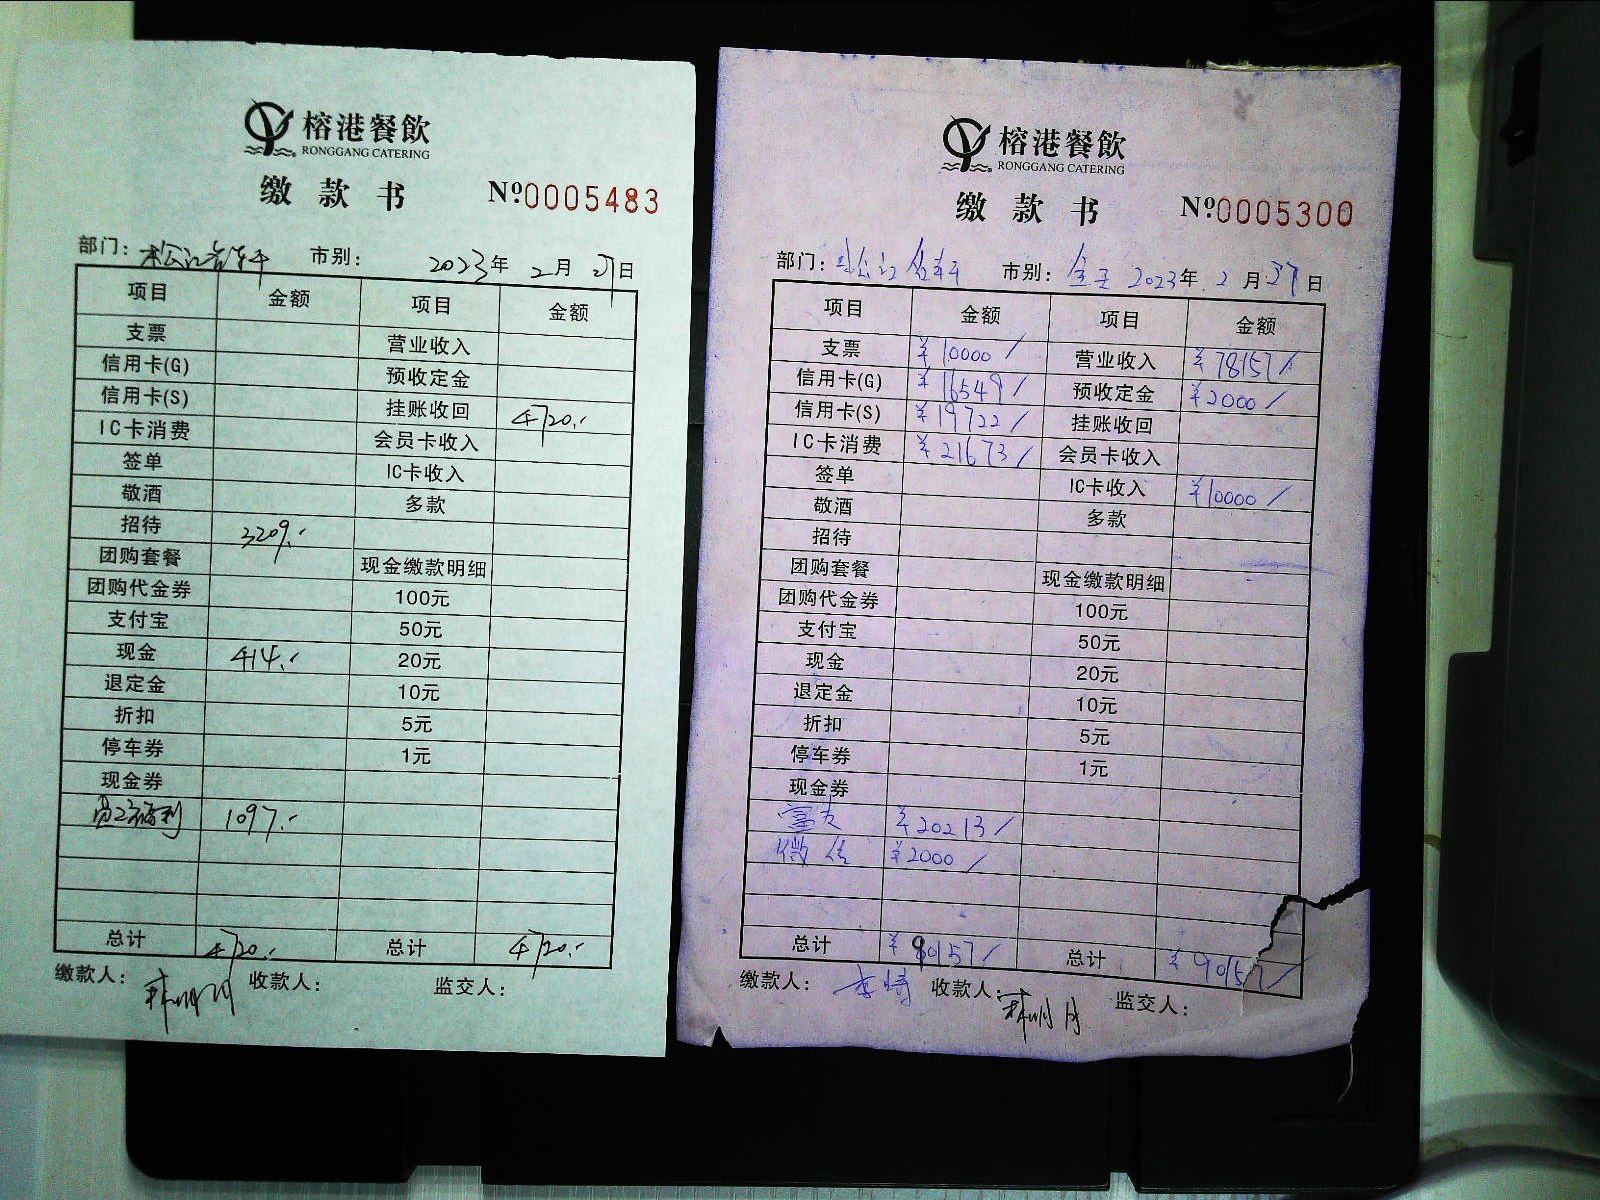 榕港餐飲
RONGGANG CATERING
缴款书 №0005483
部门: 市别: 2023年 2月 27日
项目 金额 项目 金额
支票 营业收入
信用卡(G) 预收定金
信用卡(S) 挂账收回 4720.-
IC卡消费 会员卡收入
签单 IC卡收入
敬酒 多款
招待 3209.-
团购套餐 现金缴款明细
团购代金券 100元
支付宝 50元
现金 414.- 20元
退定金 10元
折扣 5元
停车券 1元
现金券
员工福利 1097.-
总计 4720.- 总计 4720.-
缴款人: 收款人: 监交人:
榕港餐飲
RONGGANG CATERING
缴款书 №0005300
部门: 市别: 2023年 2月 27日
项目 金额 项目 金额
支票 ¥10000/ 营业收入 ¥78157/
信用卡(G) ¥16549/ 预收定金 ¥2000/
信用卡(S) ¥19722/ 挂账收回
IC卡消费 ¥21673/ 会员卡收入
签单 IC卡收入 ¥10000/
敬酒 多款
招待
团购套餐 现金缴款明细
团购代金券 100元
支付宝 50元
现金 20元
退定金 10元
折扣 5元
停车券 1元
现金券
¥20213/
微信 ¥2000/
总计 ¥90157/ 总计 ¥90157/
缴款人: 收款人: 监交人: